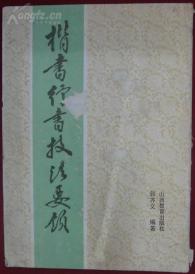 楷书行书技法要领
郭齐文 编著
山西教育出版社